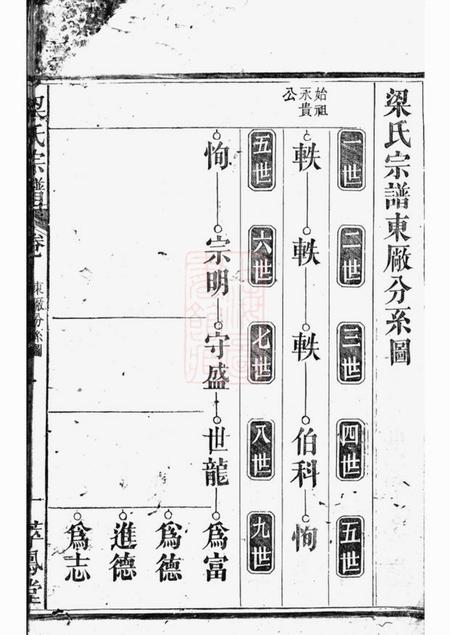 梁氏宗譜東厰分系圖
一世 二世 三世 四世 五世
始祖永貴公
軼 軼 軼 伯科 恂
五世 六世 七世 八世 九世
恂 宗明 守盛 世龍 爲富
爲德
進德
爲志
梁氏宗譜 卷
東厰分系圖
一
鳳堂